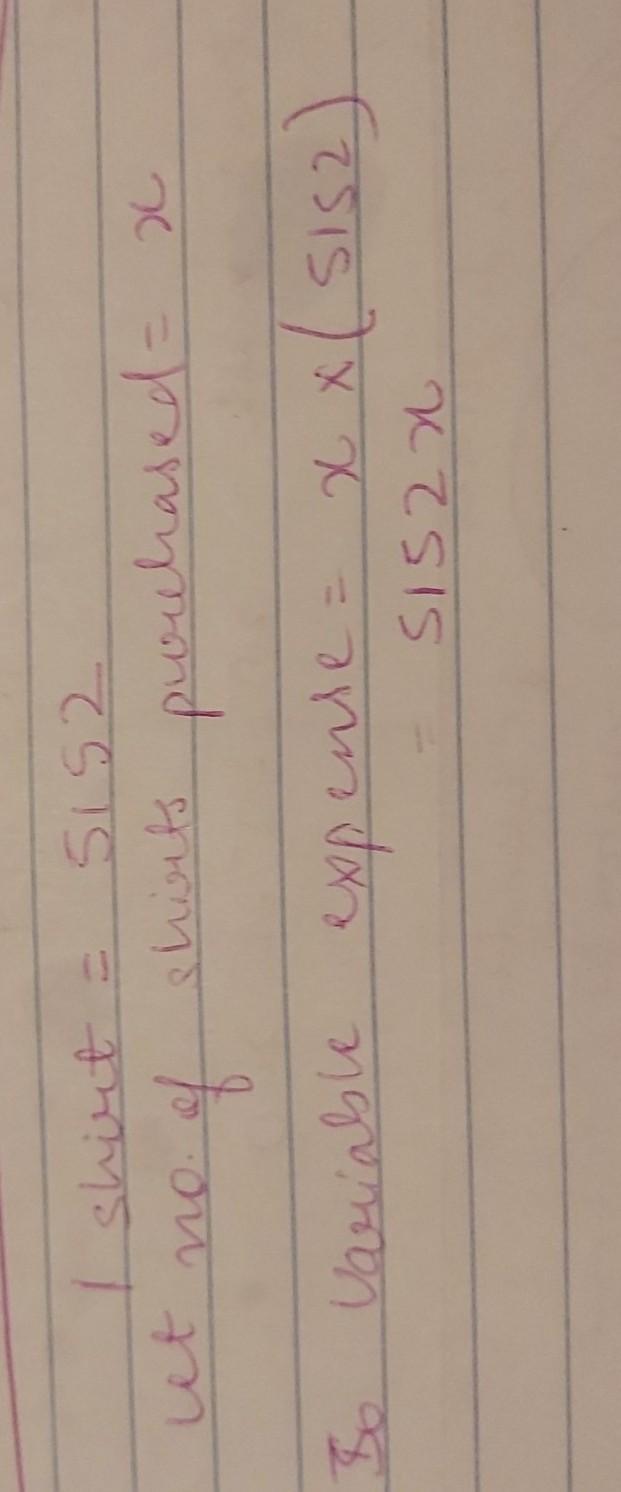 1 shirt = 5152
let no. of shirts purchased = x
Variable expense = x × (5152)
= 5152x